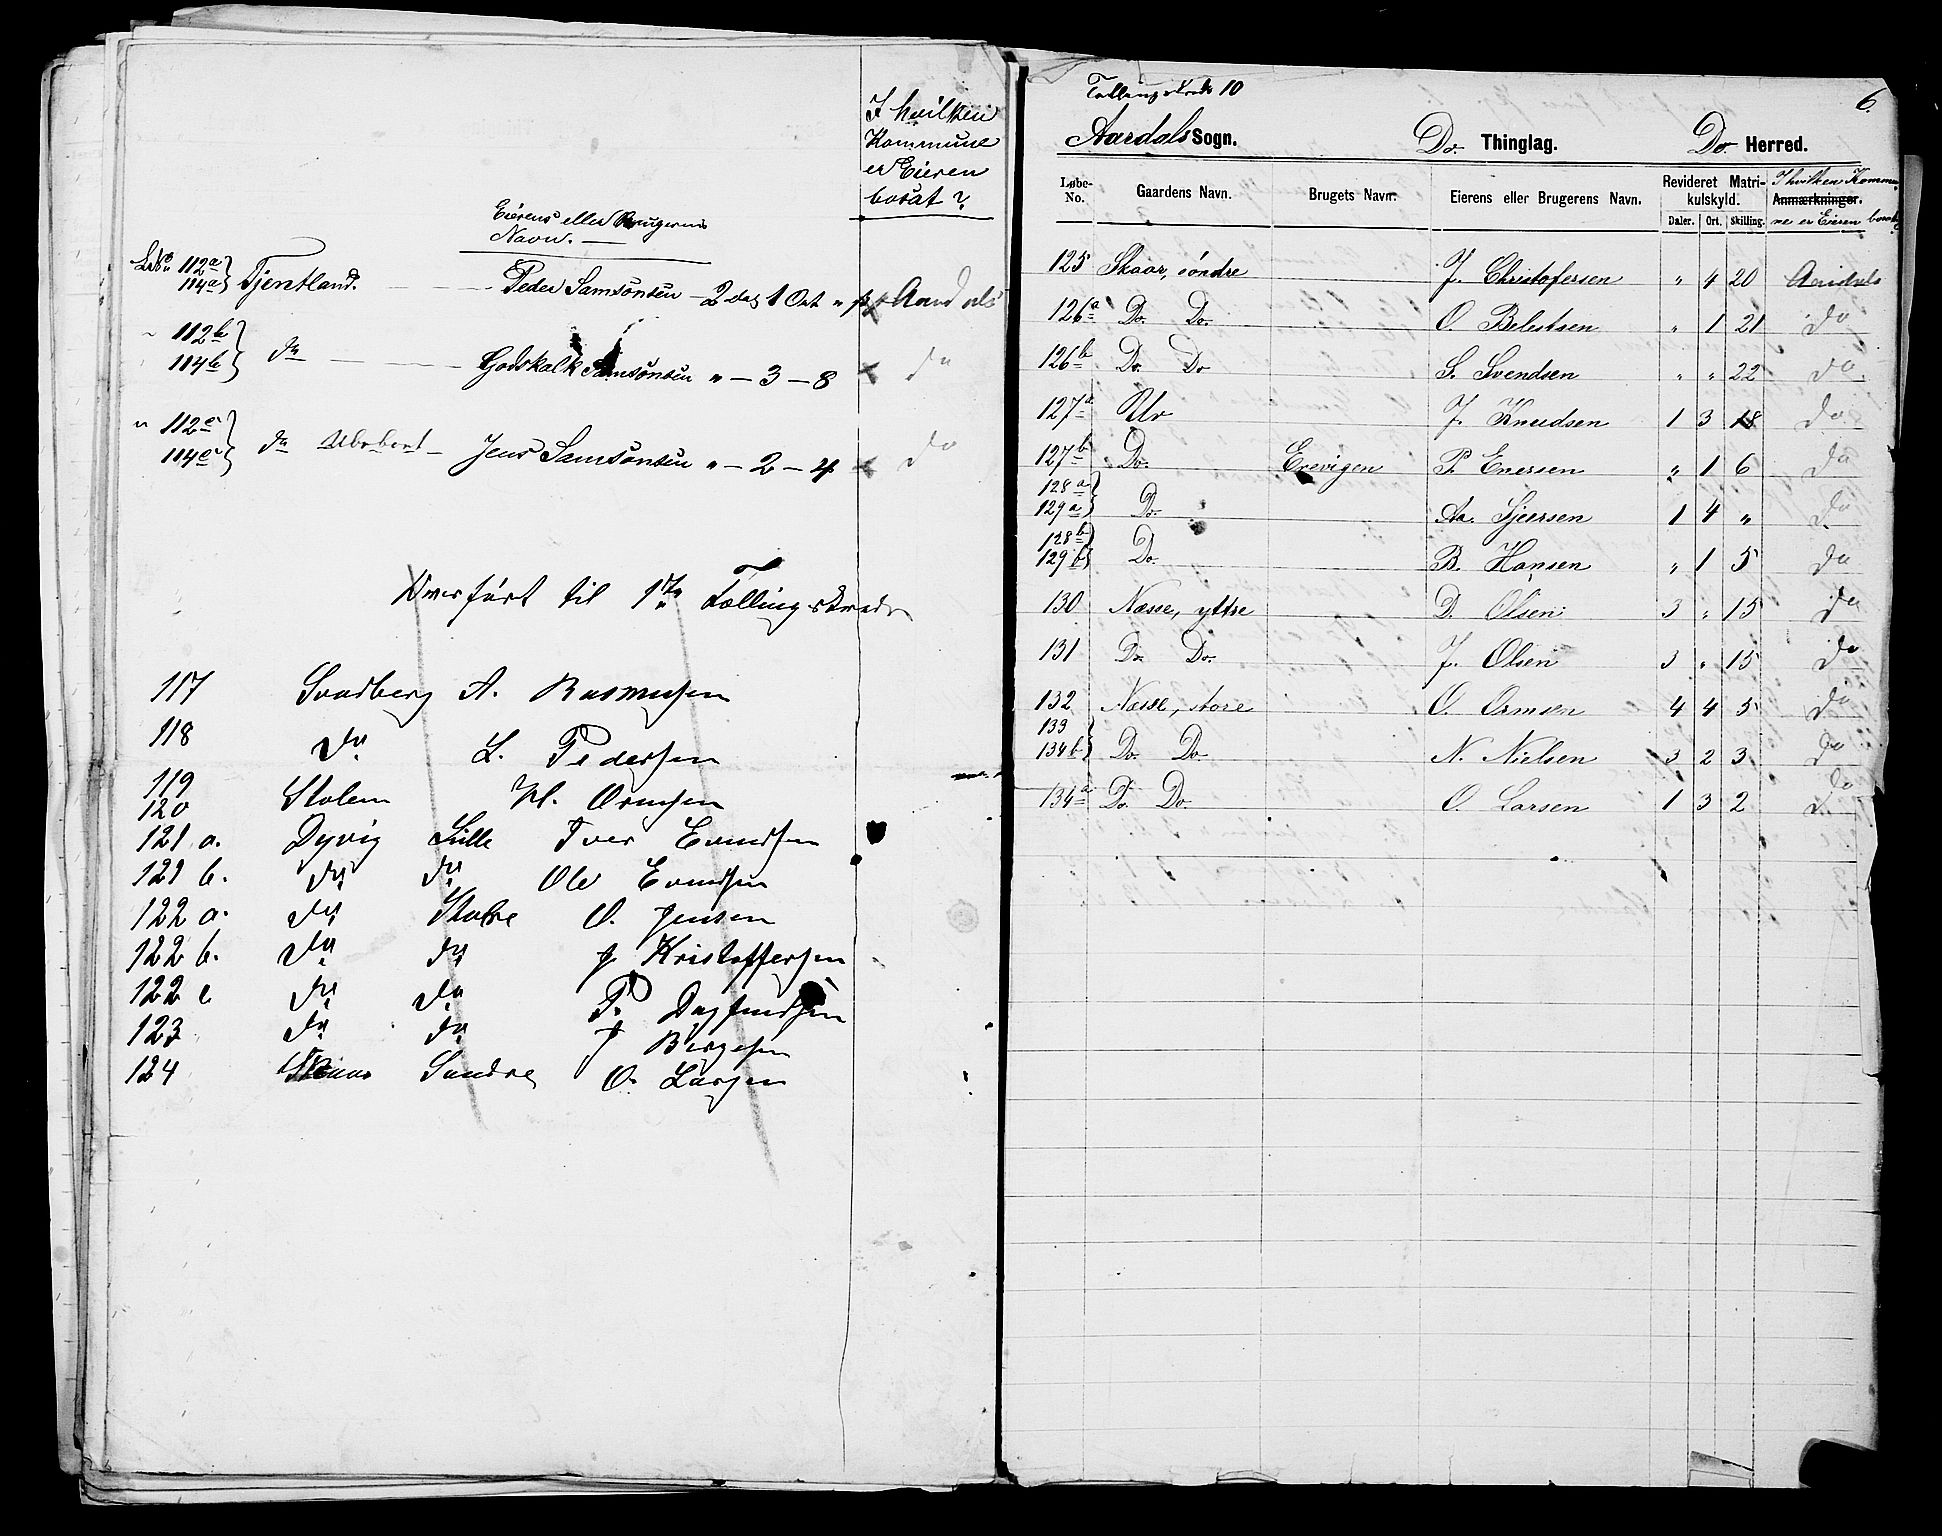 I hvilken
Kommune
er Eieren
bosat?
Eierens eller Brugerens
Navn.
LNo 112a 114a } Tjentland. Peder Samsonsen - 2 dal 1 Ort " ß Aardals
" 112b 114b } do Godskalk Samsonsen " - 3 - 8 do
" 112c 114c } do Jens Samsonsen " - 2 - 4 do
Overført til 1ste Tællingskreds
117 Svadberg A. Rasmussen
118 do L. Pedersen
119
120 Stolem Ormsen
121 a. Dyvig Lille Iver Evendsen
121 b. do do Ole Evendsen
122 a. do Store O. Jensen
122 b. do do J Kristoffersen
122 c do do P. Dagfindsen
123 do do J Birgesen
124 Skaar Søndre O. Larsen
Tællingskreds 10
6.
Aardals Sogn. Do. Thinglag. Do. Herred.
Løbe-No. Gaardens Navn. Brugets Navn. Eierens eller Brugerens Navn. Revideret Matrikulskyld. Daler. Ort. Skilling. Anmærkninger. I hvilken Kommune er Eieren bosat
125 Skaar, söndre J. Christofersen " 4 20 Aardals
126a Do. Do. O. Belestsen " 1 21 do
126b Do. Do S. Svendsen " " 22 do
127a Ur J. Knudsen 1 3 18 do
127b Do. Erevigen P. Enersen " 1 6 do
128a 129a } Do. Aa. Sjeersen 1 4 " do
128b 129b } Do. B. Hansen " 1 5 do
130 Næsse, yttre D. Olsen 3 " 15 do
131 Do. Do. J. Olsen 3 " 15 do
132 Næsse, store O. Ormsen 4 4 5 do
133 134b } Do. Do. N. Nielsen 3 2 3 do
134a Do. Do. O. Larsen 1 3 2 do